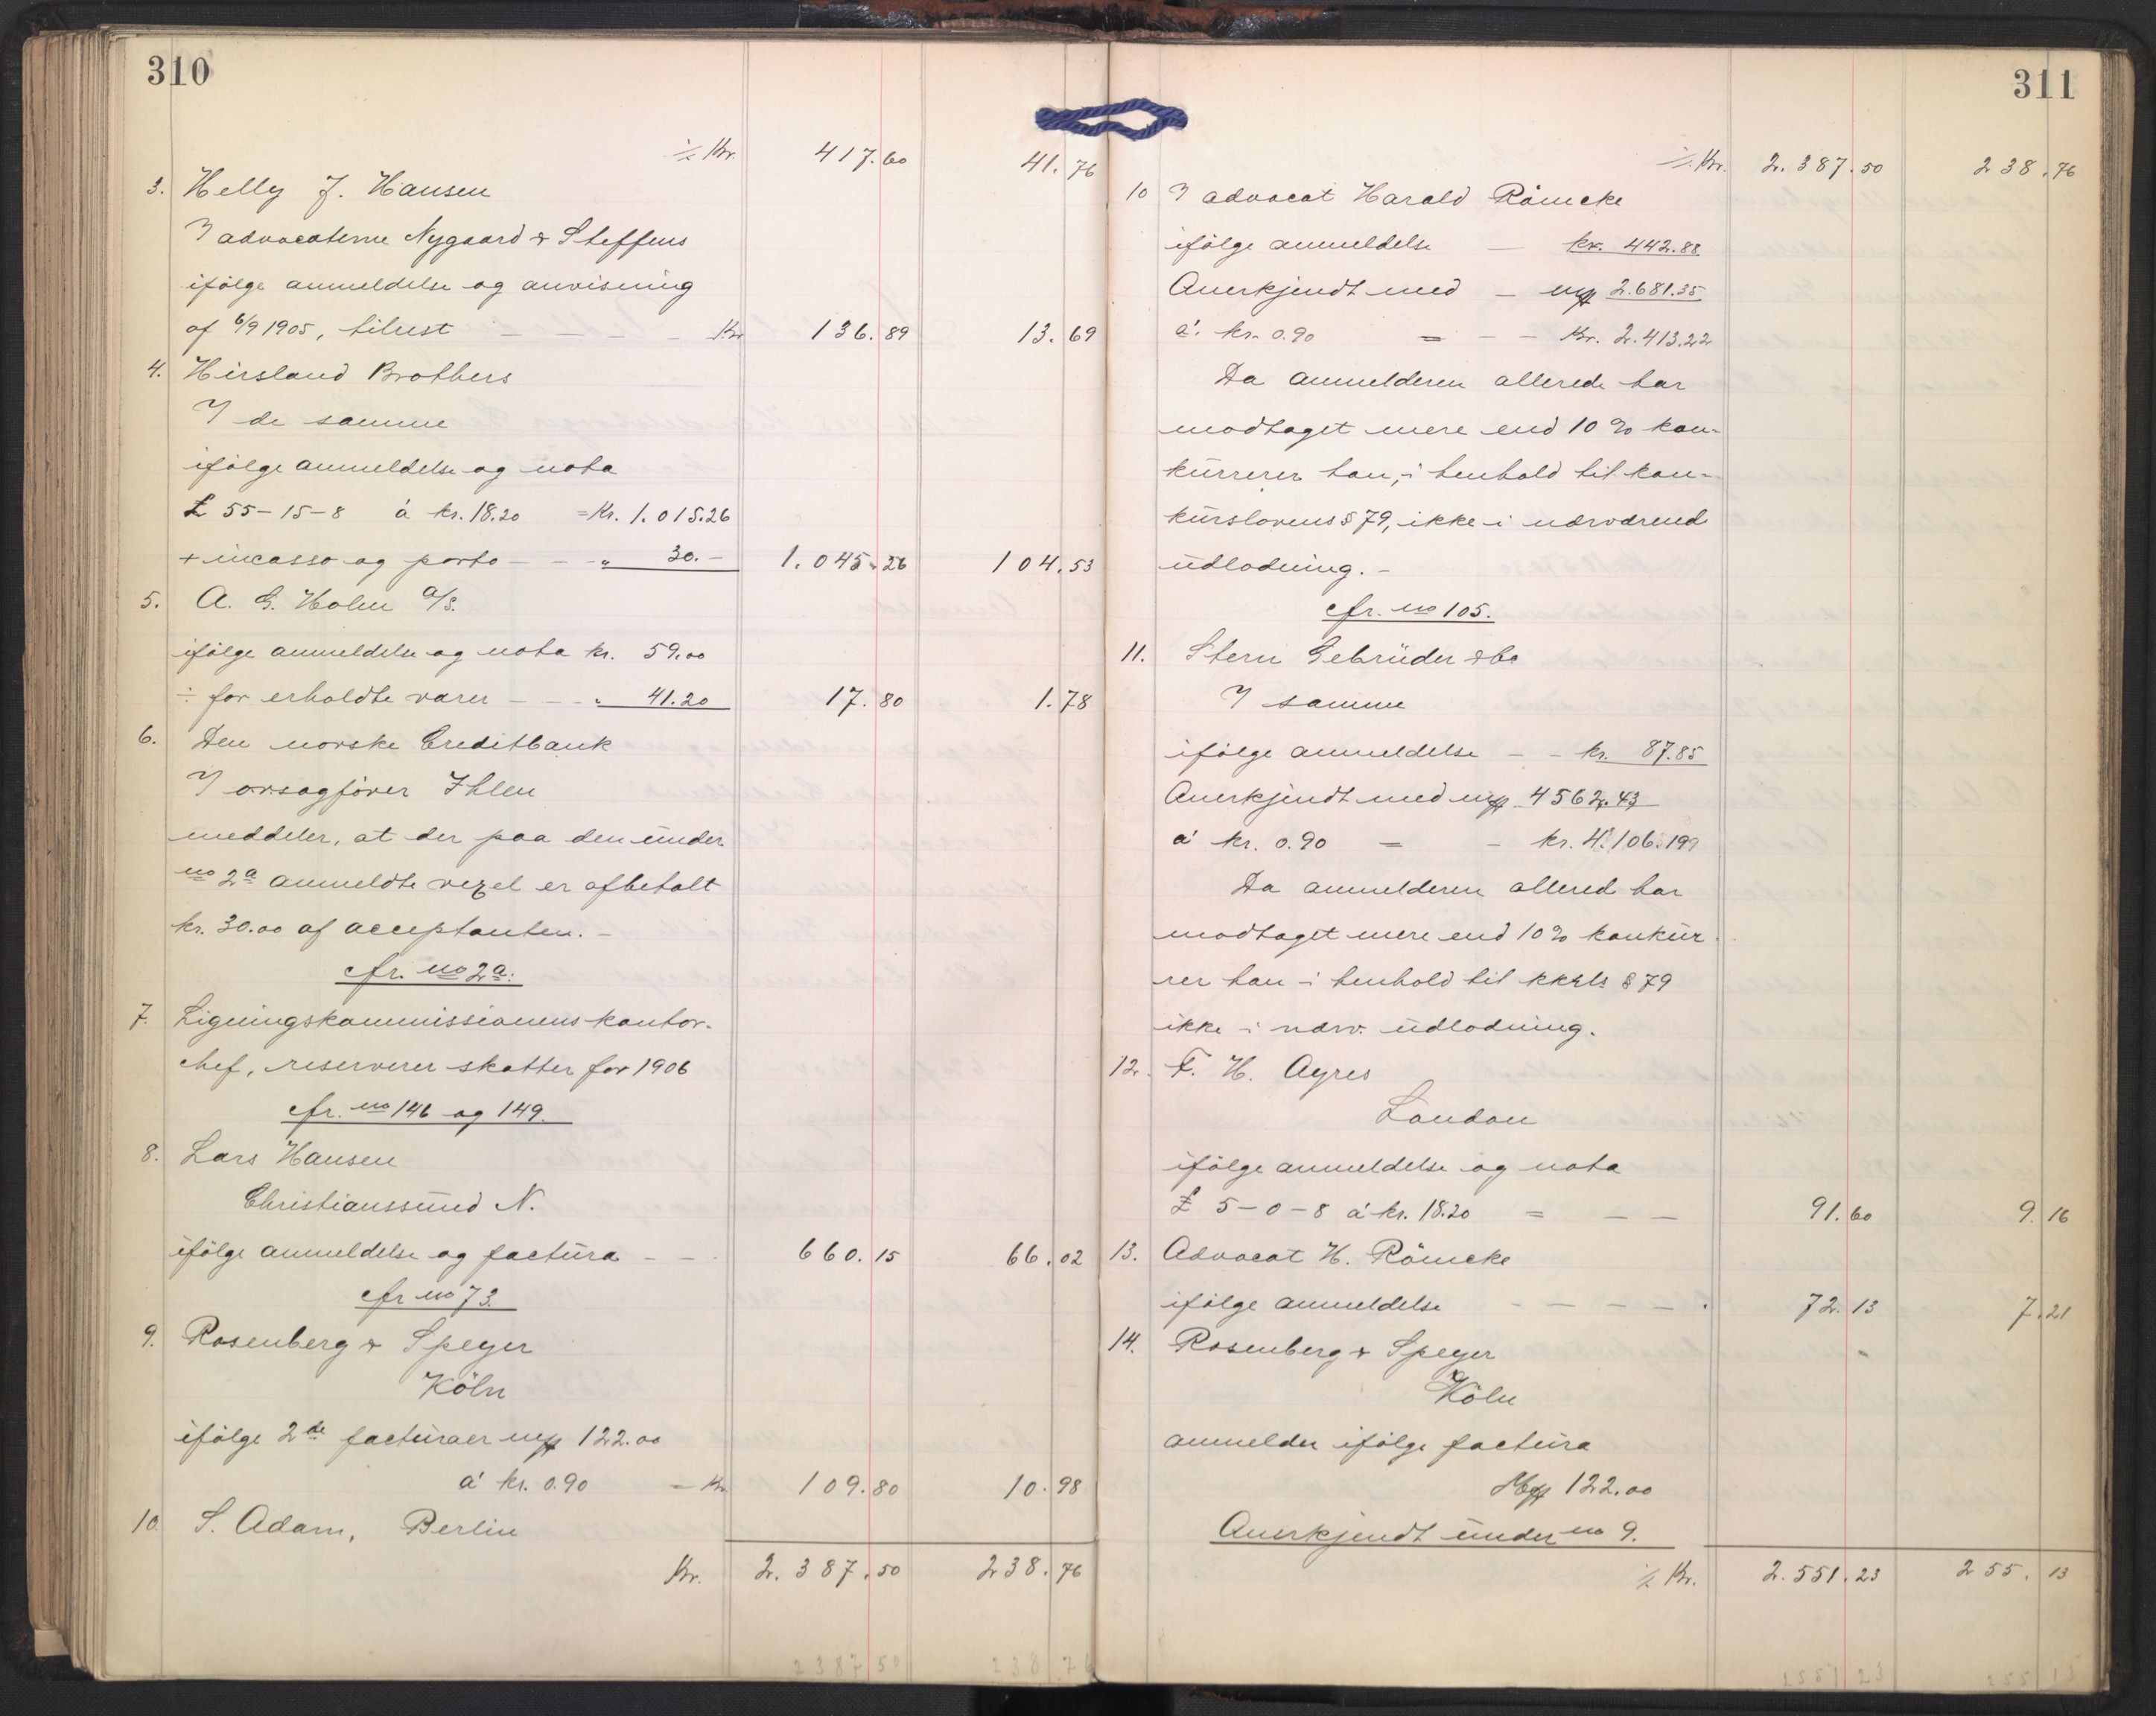 310
·/. Kr. 417.60 41.76
3. Helly J. Hansen
V advocaterne Nygaard & Steffens
ifölge anmeldelse og anvisning
af 6/9 1905, tilrest – – – – Kr 136.89 13.69
4. Hirsland Brothers
V de samme
ifölge anmeldelse og nota
£ 55-15-8 á kr. 18.20 = Kr. 1.015.26
+ incasso og porto – – „ 30.– 1.045.26 104.53
5. A. G. Holm A/S.
ifölge anmeldelse og nota kr. 59.00
÷ for erholdte varer – – „ 41.20 17.80 1.78
6. Den norske Creditbank
V orsagförer Ihlen
meddeler, at der paa den under
no 2a anmeldte vexel er afbetalt
kr. 30.00 af acceptanten. –
cfr. no 2a.
7. Ligningskommissionens kontor-
chef, reserverer skatter for 1906
cfr. no 146 og 149.
8. Lars Hansen
Christianssund N.
ifölge anmeldelse og factura – – 660.15 66.02
cfr no 73.
9. Rosenberg & Speyer
Köln
ifölge 2de facturaer mk 122.00
á kr. 0.90 = Kr 109.80 10.98
10. S. Adam, Berlin
Kr. 2.387.50 238.76
2387 50 238 76
311
·/. Kr. 2.387.50 238.76
10 V advocat Harald Römcke
ifölge anmeldelse – kr. 442.88
Anerkjendt med – mk 2.681.35
á kr. 0.90 = – – Kr. 2.413.22
Da anmelderen allerede har
modtaget mere end 10 % kon-
kurrerer han, i henhold til kon-
kurslovens § 79, ikke i nærværende
udlodning. –
cfr. no 105.
11. Stern Gebrüder & Co
V samme
ifölge anmeldelse – – kr. 87.85
Anerkjendt med mk 4562.43
á kr. 0.90 = – kr. 4.106.19
Da anmelderen allered har
modtaget mere end 10 % konkur-
rer han i henhold til kksls § 79
ikke i nærv. udlodning.
12. F. H. Ayres
London
ifölge anmeldelse og nota
£ 5-0-8 á kr. 18.20 = – – 91.60 9.16
13. Advocat H. Römcke
ifölge anmeldelse – – – – 72.13 7.21
14. Rosenberg & Speyer
Köln
anmelder ifölge factura
Mk 122.00
Anerkjendt under no 9.
·/. Kr. 2.551.23 255.13
2551 23 255 13